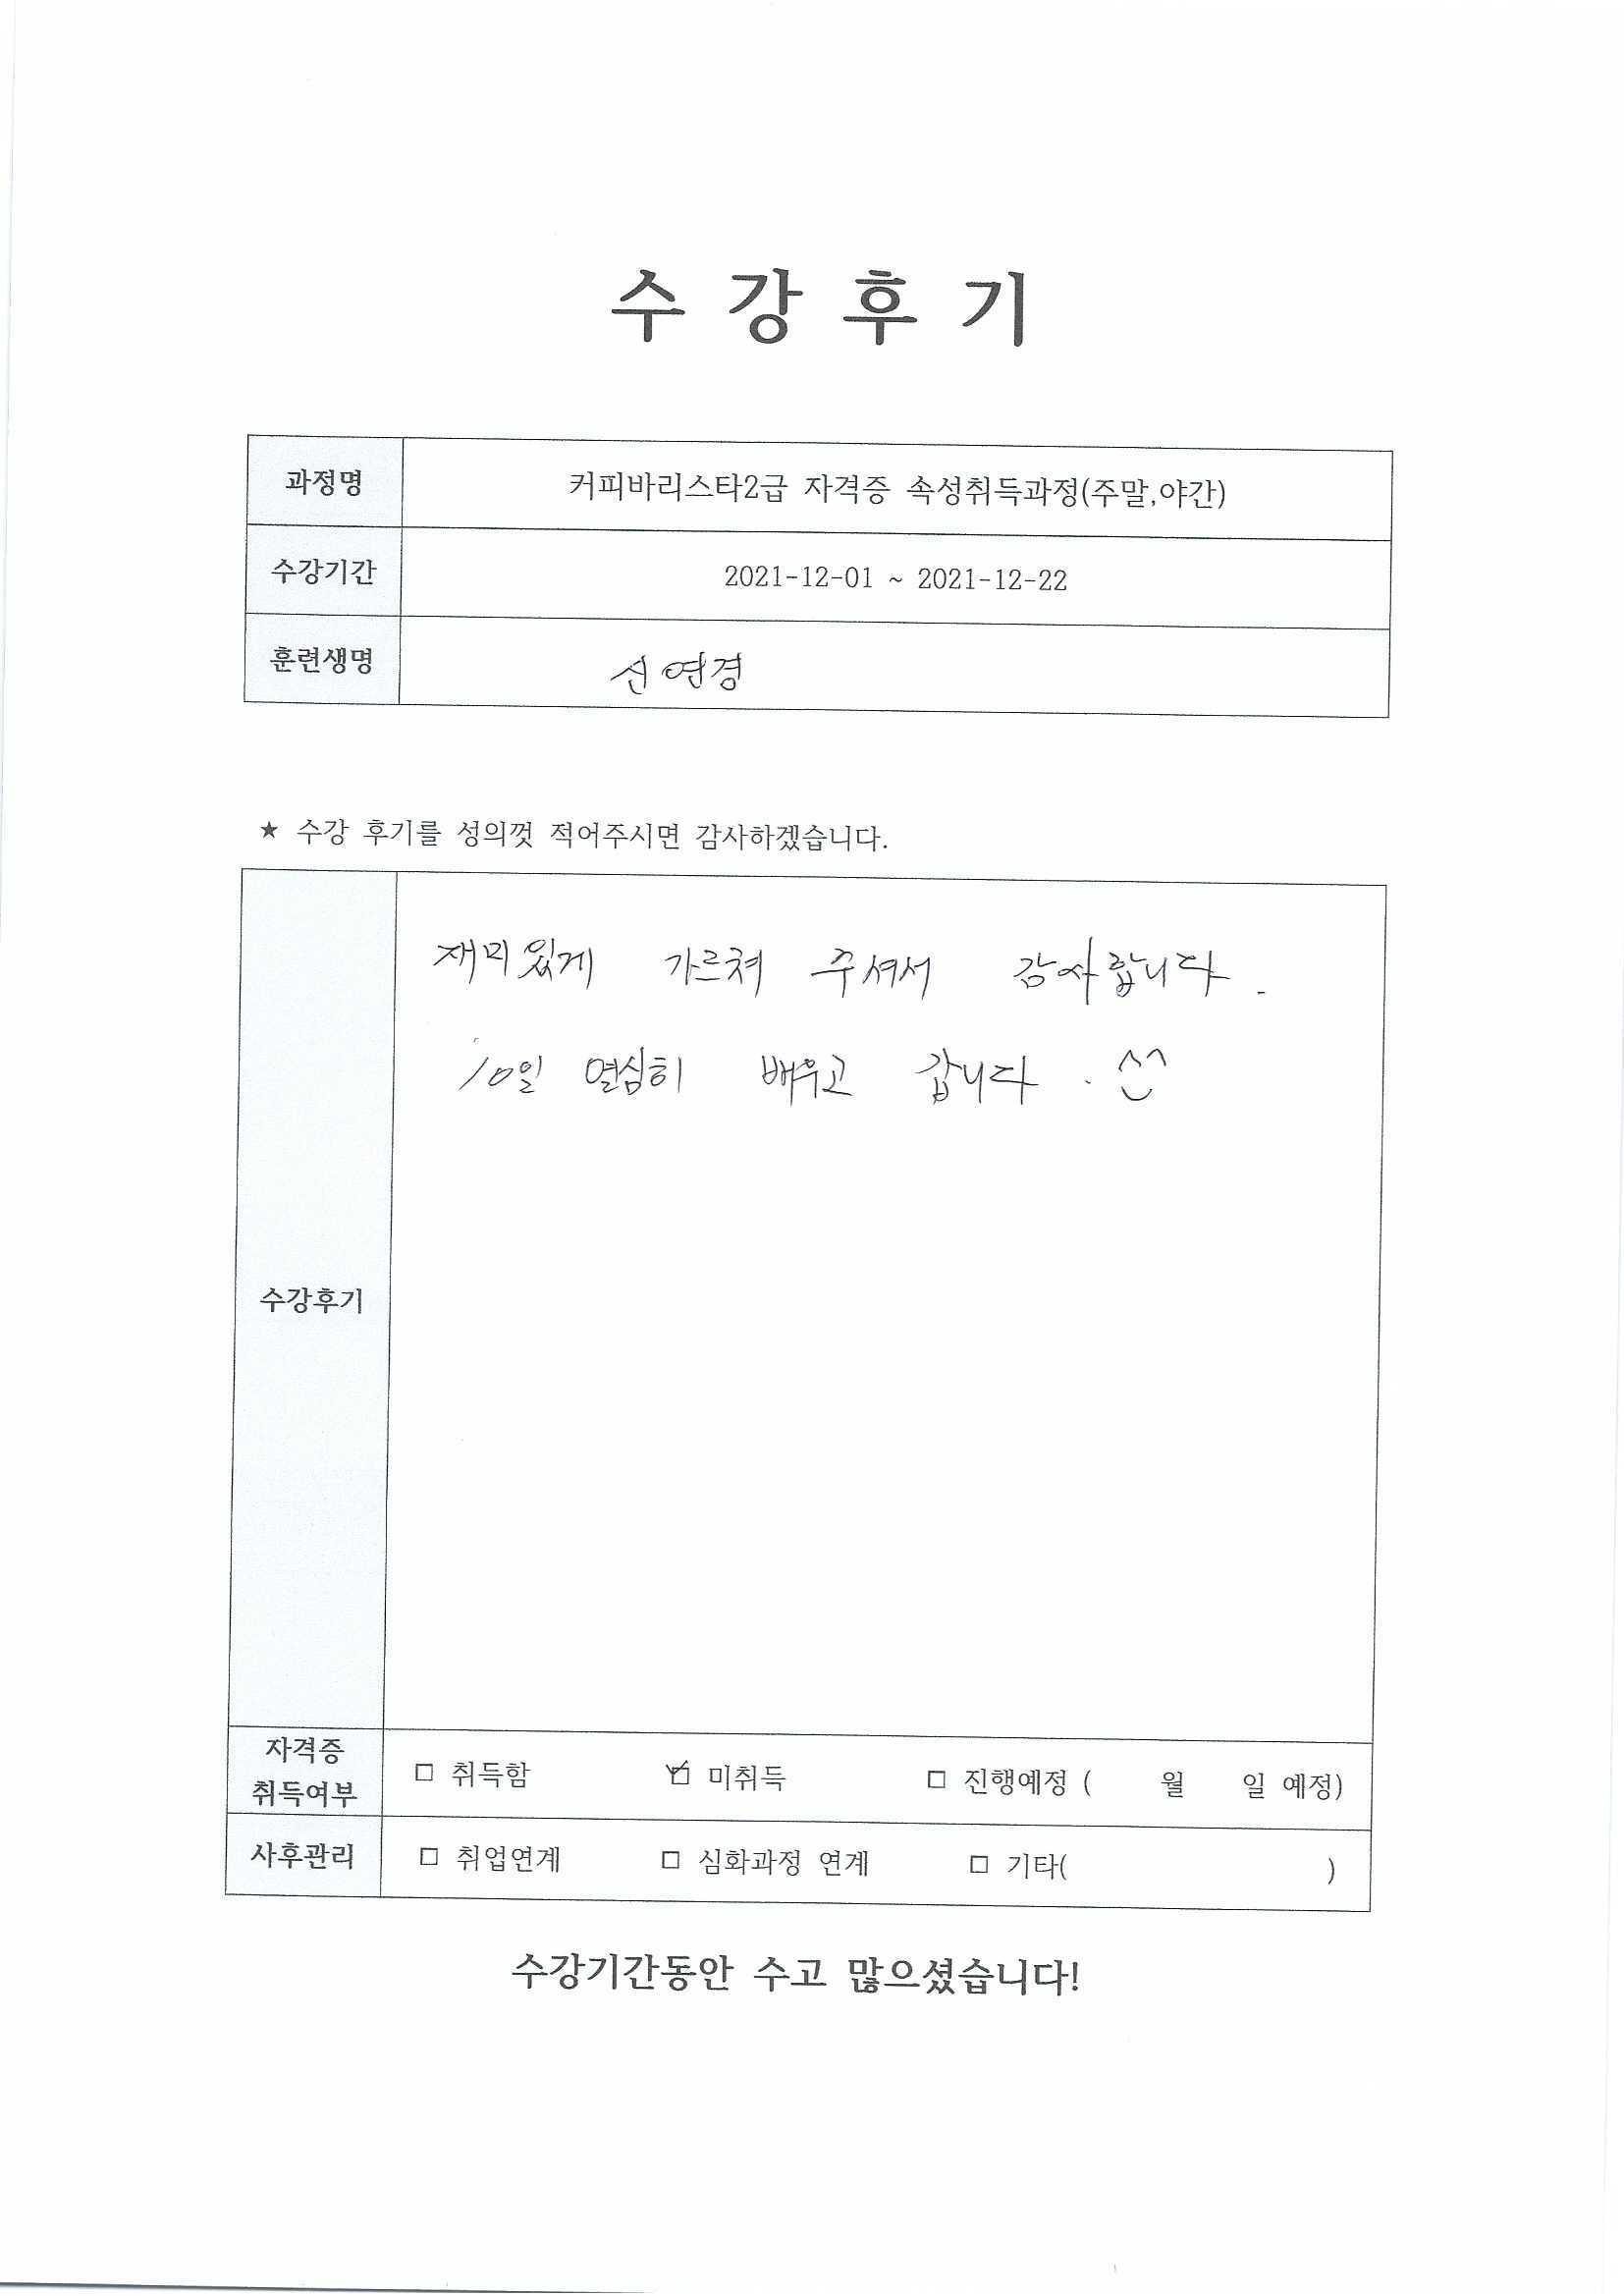 수 강 후 기
과정명 커피바리스타2급 자격증 속성취득과정(주말,야간)
수강기간 2021-12-01 ~ 2021-12-22
훈련생명 신연경
★ 수강 후기를 성의껏 적어주시면 감사하겠습니다.
재미있게 가르쳐 주셔서 감사합니다.
10일 열심히 배우고 갑니다. ^^
수강후기
자격증
취득여부
□ 취득함 ☑ 미취득 □ 진행예정 ( 월 일 예정)
사후관리 □ 취업연계 □ 심화과정 연계 □ 기타( )
수강기간동안 수고 많으셨습니다!